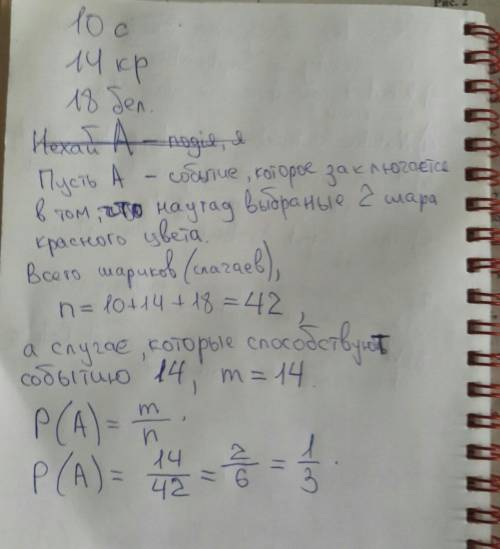 Рис. 2
10 с
14 кр
18 бел.
Нехай А - подія, я
Пусть А - событие, которое заключается
в том, что наугад выбраные 2 шара
красного цвета.
Всего шариков (слачаев),
n = 10+14+18 = 42 ,
а случае, которые способствуют
событию 14, m = 14.
P(A) = m/n .
P(A) = 14/42 = 2/6 = 1/3 .